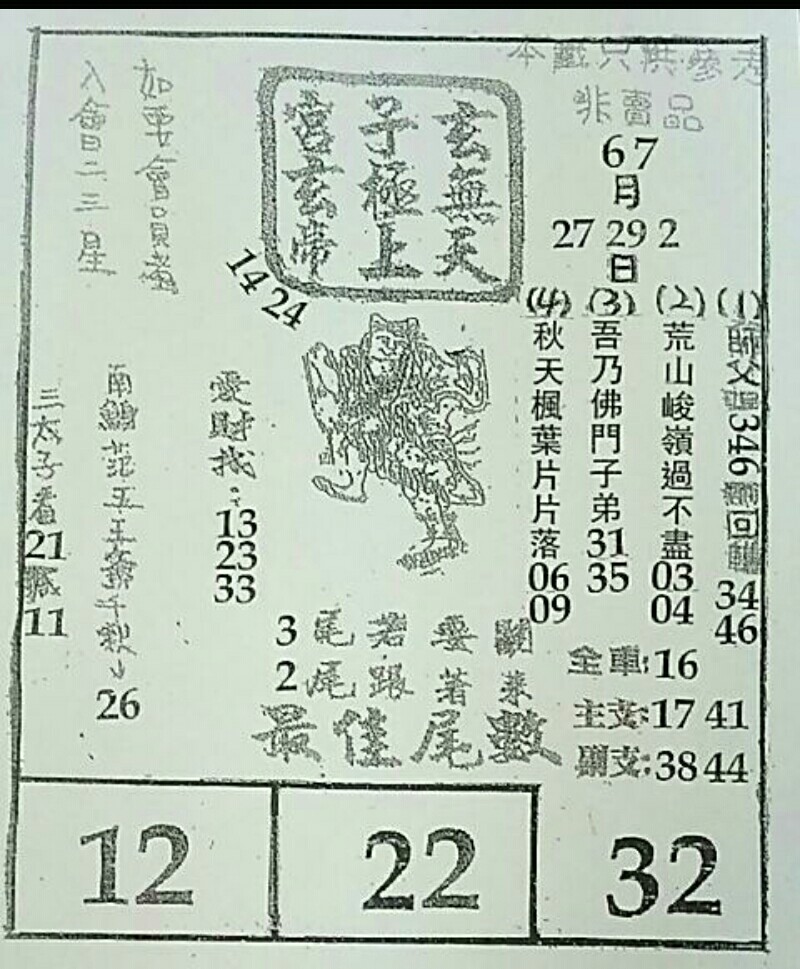 本籤只供參考
非賣品
67
月
27 29 2
日
玄無天
子極上
宮玄帝
14 24
如要會員
入會二三星
(1)
祖父 346 回
34
46
(2)
荒山峻嶺過不盡
03
04
(3)
吾乃佛門子弟
31
35
(4)
秋天楓葉片片落
06
09
愛財找:
13
23
33
南鯤范五王爺千秋
26
三太子看
21
11
3尾若要
2尾跟著來
最佳尾數
全車:16
主支:17 41
副支:38 44
12
22
32